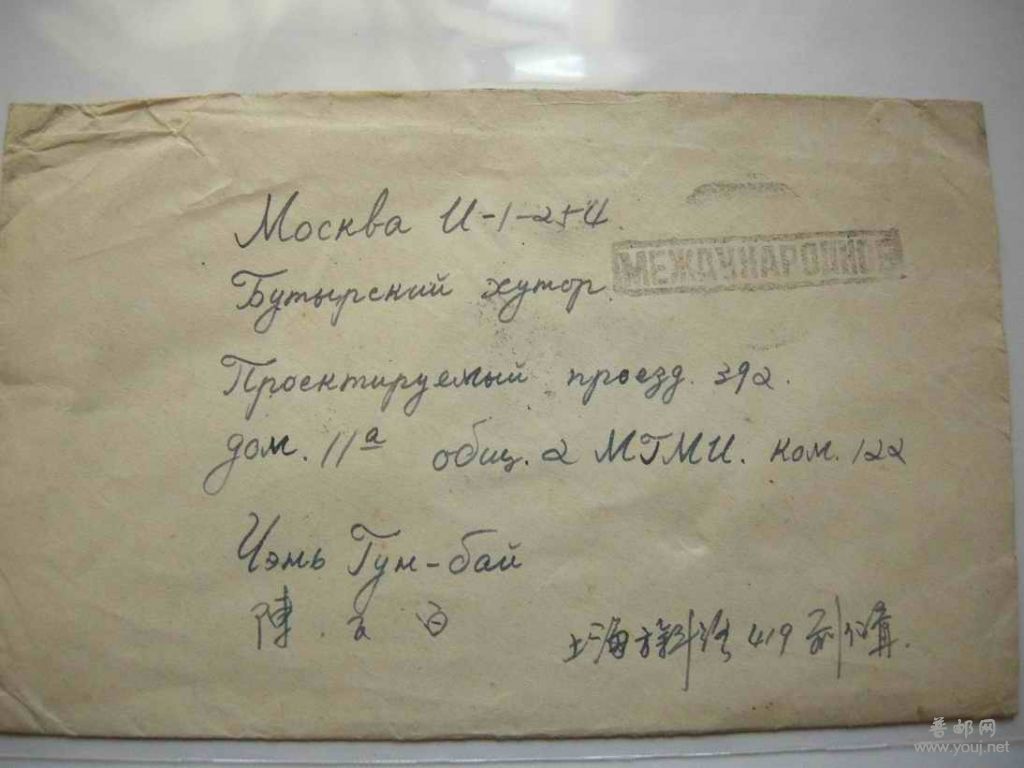 Москва И-1-254.
МЕЖДУНАРОДНОЕ
Бутырский хутор.
Проектируемый проезд. 392.
дом. 11а общ. 2 МГМИ. ком. 122
Чэнь Гун-бай
陳 公 白
上海 419
普邮网
www.youj.net